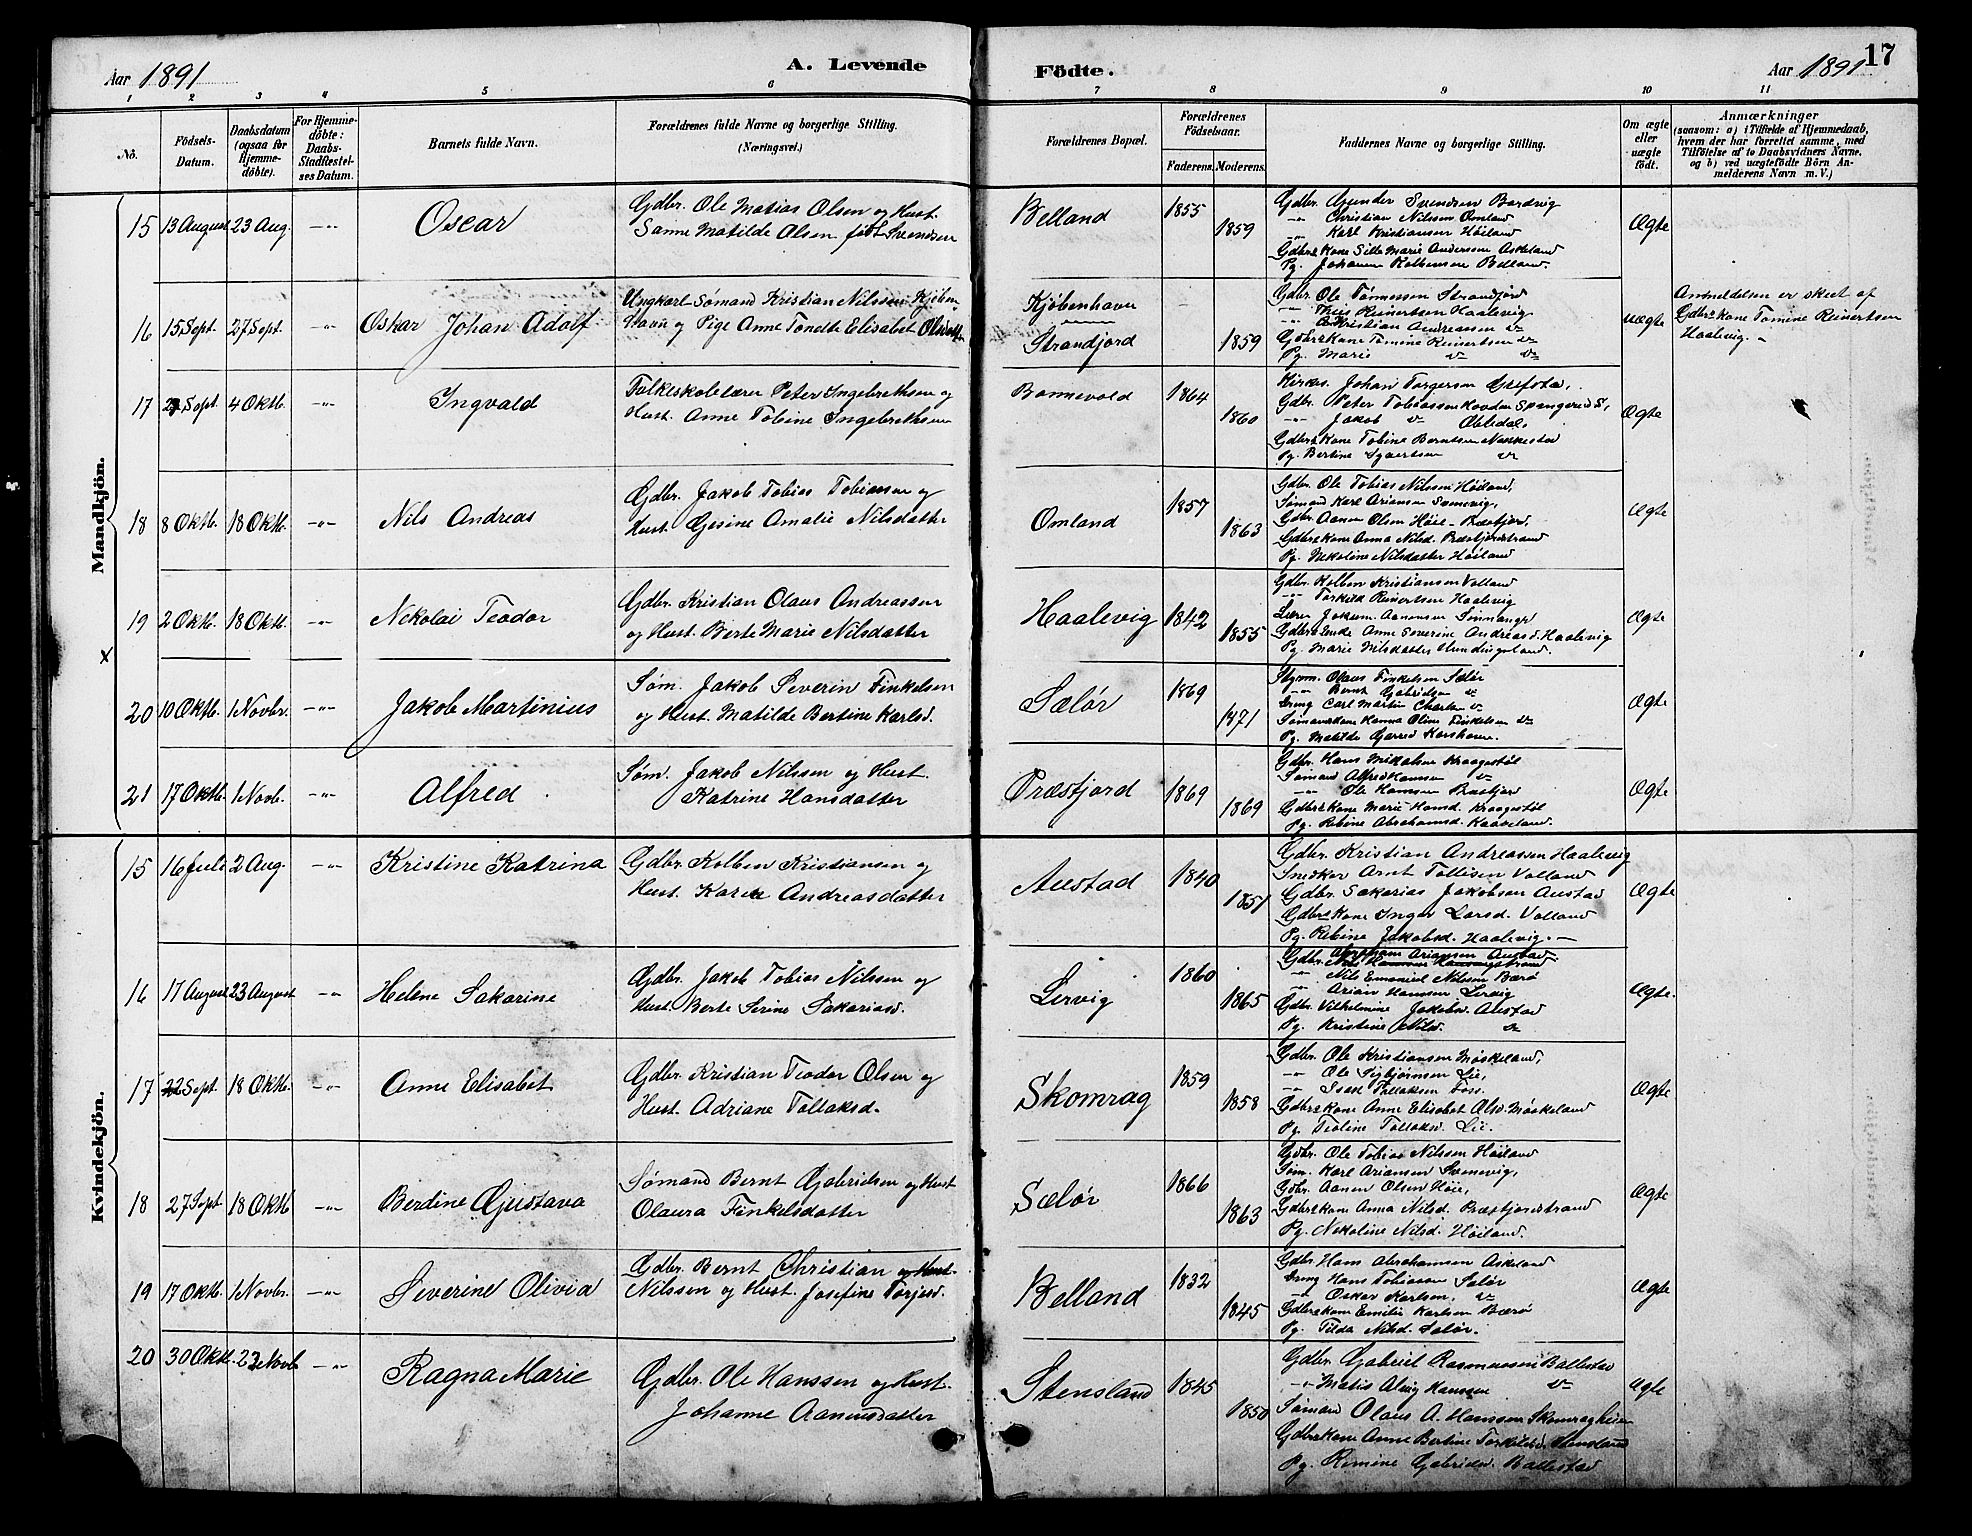 Aar 1891
A. Levende
Födte.
Aar 1891
17
1 2 3 4 5 6 7 8 9 10 11
No.
Födsels-Datum.
Daabsdatum (ogsaa for Hjemmedöbte).
For Hjemmedöbte: Daabs-Stadfestelses Datum.
Barnets fulde Navn.
Forældrenes fulde Navne og borgerlige Stilling. (Næringsvei.)
Forældrenes Bopæl.
Forældrenes Födselsaar.
Faderens. Moderens.
Faddernes Navne og borgerlige Stilling.
Om ægte eller uægte födt.
Anmærkninger (saasom: a) i Tilfælde af Hjemmedaab, hvem der har forrettet samme, med Tilföielse af to Daabsvidners Navne, og b) ved uægtefödte Börn Anmelderens Navn m. V.)
Mandkjön.
15 13 August 23 Aug. -"- Oscar
Gdbr. Ole Matias Olsen og Hust.
Sanne Matilde Olsen født Svendsen
Belland 1855 1859
Gdbr. Gunder Svendsen Bardvig
-"- Christian Nilssen Omland
-"- Karl Kristiansen Höiland
Gdbrs Kone Sille Marie Andersen Askeland
Pg. Johanne Kolbensen Belland.
Ægte
16 15 Sept. 27 Sept. -"- Oskar Johan Adolf
Ungkarl Sømand Kristian Nilssen Kjöben
havn og Pige Anne Tondte Elisabet
Kjöbenhavn
Strandjord
- 1859
Gdbr. Ole Tønnessen Strandfjord
-"- Theis Reinertsen Haalevig
-"- Kristian Andreassen do
Gdbrs Kone Tomine Reinertsen do
Pg. Marie do do
uægte
Anmeldelsen er skeet af
Gdbrs Kone Tomine Reinertsen
Haalevig.
17 Sept. 4 Oktb. -"- Ingvald
Folkeskolelærer Peter Ingebrethsen og
Hust. Anne Tobine Ingebrethsen
Bannevold 1864 1860
Kirkes. Johan Torgersen
Gdbr. Peter Tobiassen Hovden Spangereid S.,
-"- Jakob do
Gdbrs Kone Tobine Berntsen
Pg. Bertine do
Ægte
18 8 Oktb. 18 Oktb. -"- Nils Andreas
Gdbr. Jakob Tobias Tobiassen og
Hust. Gesine Amalie Nilsdatter
Omland 1857 1863
Gdbr. Ole Tobias Nilssen Höiland,
Sømand Karl Ariansen Svenevig,
Gdbr. Aanen Olsen Höie - Præstfjord,
Gdbrs Kone Anna Nilsd. Præstfjordstrand
Pg. Nekoline Nilsdatter Höiland
Ægte
19 2 Oktb. 18 Oktb. -"- Nekolai Teodor
Gdbr. Kristian Olaus Andreassen
og Hust. Berte Marie Nilsdatter
Haalevig 1842 1855
Gdbr. Kolben Kristiansen Valland
-"- Torkild Reinertsen Haalevig
Lærer Jokum Aanensen
Gdbrs Enke Anne Severine Andreasd. Haalevig
Pg. Marie Nilsdatter
Ægte
x
20 10 Oktb. 1 Novbr. -"- Jakob Martinius
Søm. Jakob Severin Finkelsen
og Hust. Matilde Bertine Karlsd.
Sælør 1869 1871
Styrm. Olaus Finkelsen Sælør
-"- Bernt Gabrielsen do
Carl Martin do
Sømandskone Hanna Oline Finkelsen do
Pg. Matilde Korshavn.
Ægte
21 17 Oktb. 1 Novb. -"- Alfred
Søm. Jakob Nilssen og Hust.
Katrine Hansdatter
Præstfjord 1869 1869
Gdbr. Hans Mikalsen Kraagestöl
Sømand Alfred Hansen do
-"- Ole Hansen
Gdbrs Kone Marie Hansd. Kraagestöl
Pg. Rebine Abrahamsd. Haaveland.
Ægte
Kvindekjön.
15 16 Juli 2 Aug. -"- Kristine Katrina
Gdbr. Kolben Kristiansen og
Hust. Karen Andreasdatter
Austad 1840 1851
Gdbr. Kristian Andreassen Haalevig
Snedker Arnt Tollisen Valland
Gdbr. Sakarias Jakobsen Austad
Gdbrs Kone Inger Larsd. Valland
Pg. Rebine Jakobsd. Haalevig.
Ægte
16 17 August 23 August -"- Helene Sakarine
Gdbr. Jakob Tobias Nilssen og
Hust. Berte Serine Sakariasd.
Lervig 1860 1865
Gdbr. Abraham Ariansen Austad
-"- Nils Emanuel Nilssen Bærö
-"- Arian Hansen Lervig
Gdbr. Vilhelmine Jakobsd. Austad
Pg. Kristine Nilsd. do
Ægte.
17 22 Sept. 18 Oktb. -"- Anne Elisabet
Gdbr. Kristian Teodor Olsen og
Hust. Adriane Tollaksd.
Skomrag 1859 1858
Gdbr. Ole Kristiansen Möskeland,
-"- Ole Sigbjørnsen Lie,
-"- Isak Tollaksen Foss.
Gdbrs Kone Anne Elisabet Olsd. Möskeland
Pg. Teoline Tollaksd. Lie.
Ægte
18 27 Sept. 18 Oktb -"- Berdine Gjustava
Sømand Bernt Gabrielsen og Hust
Olaura Finkelsdatter
Sælør 1866 1863
Gdbr. Ole Tobias Nilssen Höiland
Søm. Karl Ariansen Svenevig,
Gdbr. Aanen Olsen Höie,
Gdbrs Kone Anna Nilsd. Præstfjordstrand
Pg. Nekoline Nilsd. Höiland.
Ægte
19 17 Oktb. 1 Novbr. -"- Severine Olivia
Gdbr. Bernt Christian og Hust.
Nilssen og Hust. Josefine Torjusd.
Belland 1832 1845
Gdbr. Hans Abrahamsen Askeland
Hans Tobiassen Sælør
-"- Oskar Karlsen, do
Gdbrs Kone Emilie Karlsen Bærö
Pg. Tilda Nilsd. Sælør.
Ægte
20 30 Oktb. 22 Novb -"- Ragna Marie
Gdbr. Ole Hanssen og Hust.
Johanne Aanensdatter
Stensland 1845 1850
Gdbr. Gabriel Rasmussen Ballestad
-"- Matis Alvig Hanssen do
Sømand Olaus A. Hanssen Skomragheien
Gdbrs Kone Anne Bertine Torkildsd. Stensland
Pg. Remine Gabrielsd. Ballestad
Ægte